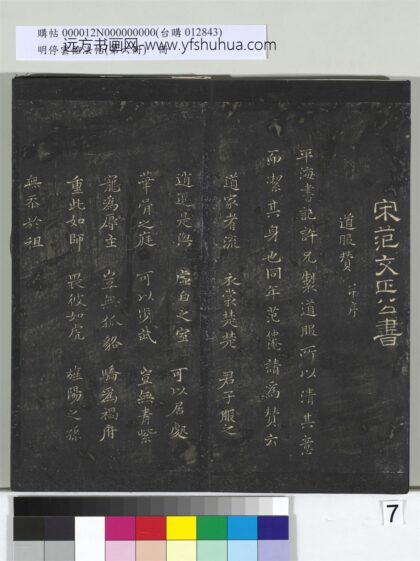 購帖 000012N000000000(台購 012843)
远方书画网 www.yfshuhua.com
宋范文正公書
道服賛 并序
平海書記許兄製道服所以清其意
而潔其身也同年范仲淹請為賛云
道家者流 衣裳楚楚 君子服之
逍遥是與 虛白之室 可以居處
華胥之庭 可以步武 豈無青紫
寵為辱主 豈無狐貉 驕為禍府
重此如師 畏彼如虎 旌陽之孫
無忝於祖
7